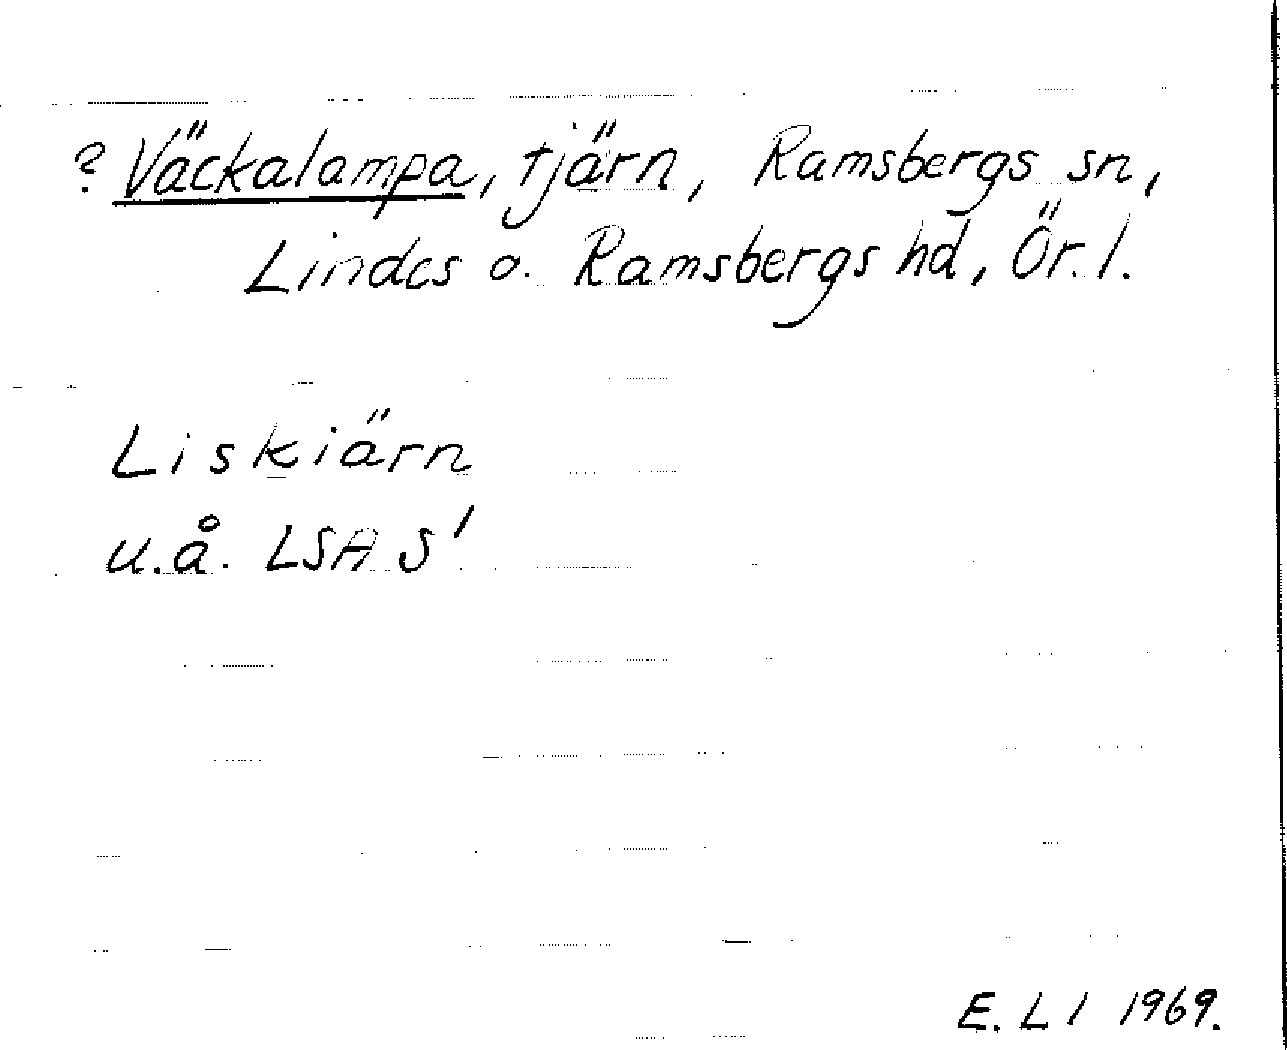 ? Väckalampa, tjärn, Ramsbergs sn,
Lindes o. Ramsbergs hd, Ör. l.
Liskiärn
u.å. LSA S'
E. L I 1969.